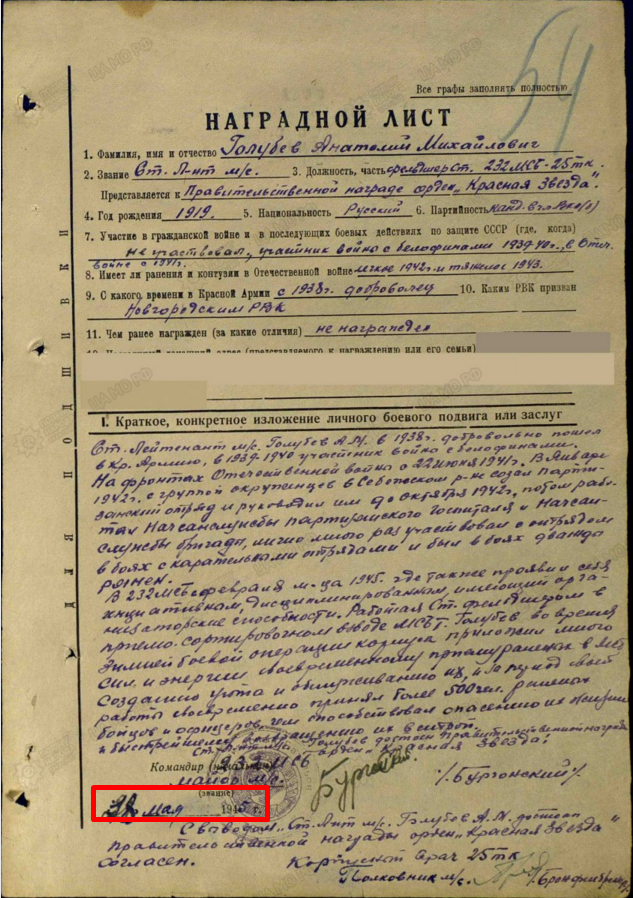 54
Все графы заполнять полностью
НАГРАДНОЙ ЛИСТ
1. Фамилия, имя и отчество Голубев Анатолий Михайлович
2. Звание Ст. Л-нт м/с. 3. Должность, часть фельдшер Ст. 232 МСБ - 25 тк.
Представляется к Правительственной награде орден „Красная Звезда".
4. Год рождения 1919. 5. Национальность Русский 6. Партийность канд. в чл ВКП(б)
7. Участие в гражданской войне и в последующих боевых действиях по защите СССР (где, когда)
не участвовал, участник война с белофинами 1939-40г., в Отеч.
война с 1941г.
8. Имеет ли ранения и контузии в Отечественной войне легкое 1942г. и тяжелое 1943.
9. С какого времени в Красной Армии с 1938г. доброволец 10. Каким РВК призван
Новгородским РВК
11. Чем ранее награжден (за какие отличия) не награжден
(представляемого к награждению или его семьи)
ДЛЯ ПОДШИВКИ
I. Краткое, конкретное изложение личного боевого подвига или заслуг
Ст. Лейтенант м/с. Голубев А.М. в 1938г. добровольно пошел
в Кр. Армию, в 1939-1940 участник война с белофинами.
На фронтах Отечественной война с 22 июня 1941г. В Январе
1942г. с группой окруженцев в Себежском р-не создал парти-
занский отряд и руководил им до октября 1942г., потом рабо-
тал Начсанслужбы партизанского Госпиталя и Начсан-
службы бригады, лично много раз участвовал с отрядом
в боях с карательными отрядами и был в боях дважда
ранен.
В 232 МСБ с февраля м-ца 1945. где также проявил себя
инициативным, дисциплинированным, имеющий орга-
низаторские способности. Работая Ст. фельдшером в
приемо-сортировочном взводе МСБ т. Голубев во время
Зимней боевой операции корпуса приложил много
сил и энергии своевременному
созданию уюта и обслуживанию их, и за период своей
работы своевременно принял более 500 чел. раненых
бойцов и офицеров, чем способствовал спасению их жизни
и быстрейшему возвращению их в строй.
Ст. Л-нт м/с. Голубев достоин правительственной награды
орден „Красная Звезда".
Командир (начальник) 232 МСБ
майор м/с.
(звание)
/Бургонский/
мая 1945 г.
С выводом „Ст. Л-нт м/с. Голубев А.М. достоин
правительственной награды орден „Красная Звезда"
согласен.
Корпусной врач 25 тк
Полковник м/с.